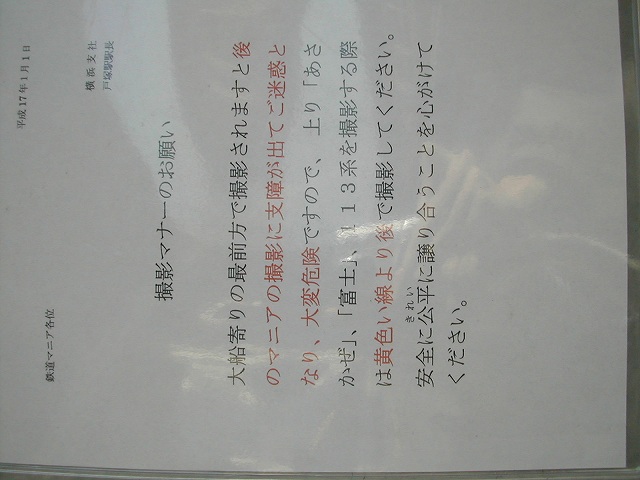 平成17年1月1日
鉄道マニア各位
横浜支社
戸塚駅駅長
撮影マナーのお願い
大船寄りの最前方で撮影されますと後
のマニアの撮影に支障が出てご迷惑と
なり、大変危険ですので、上り「あさ
かぜ」、「富士」、113系を撮影する際
は黄色い線より後で撮影してください。
きれい
安全に公平に譲り合うことを心がけて
ください。